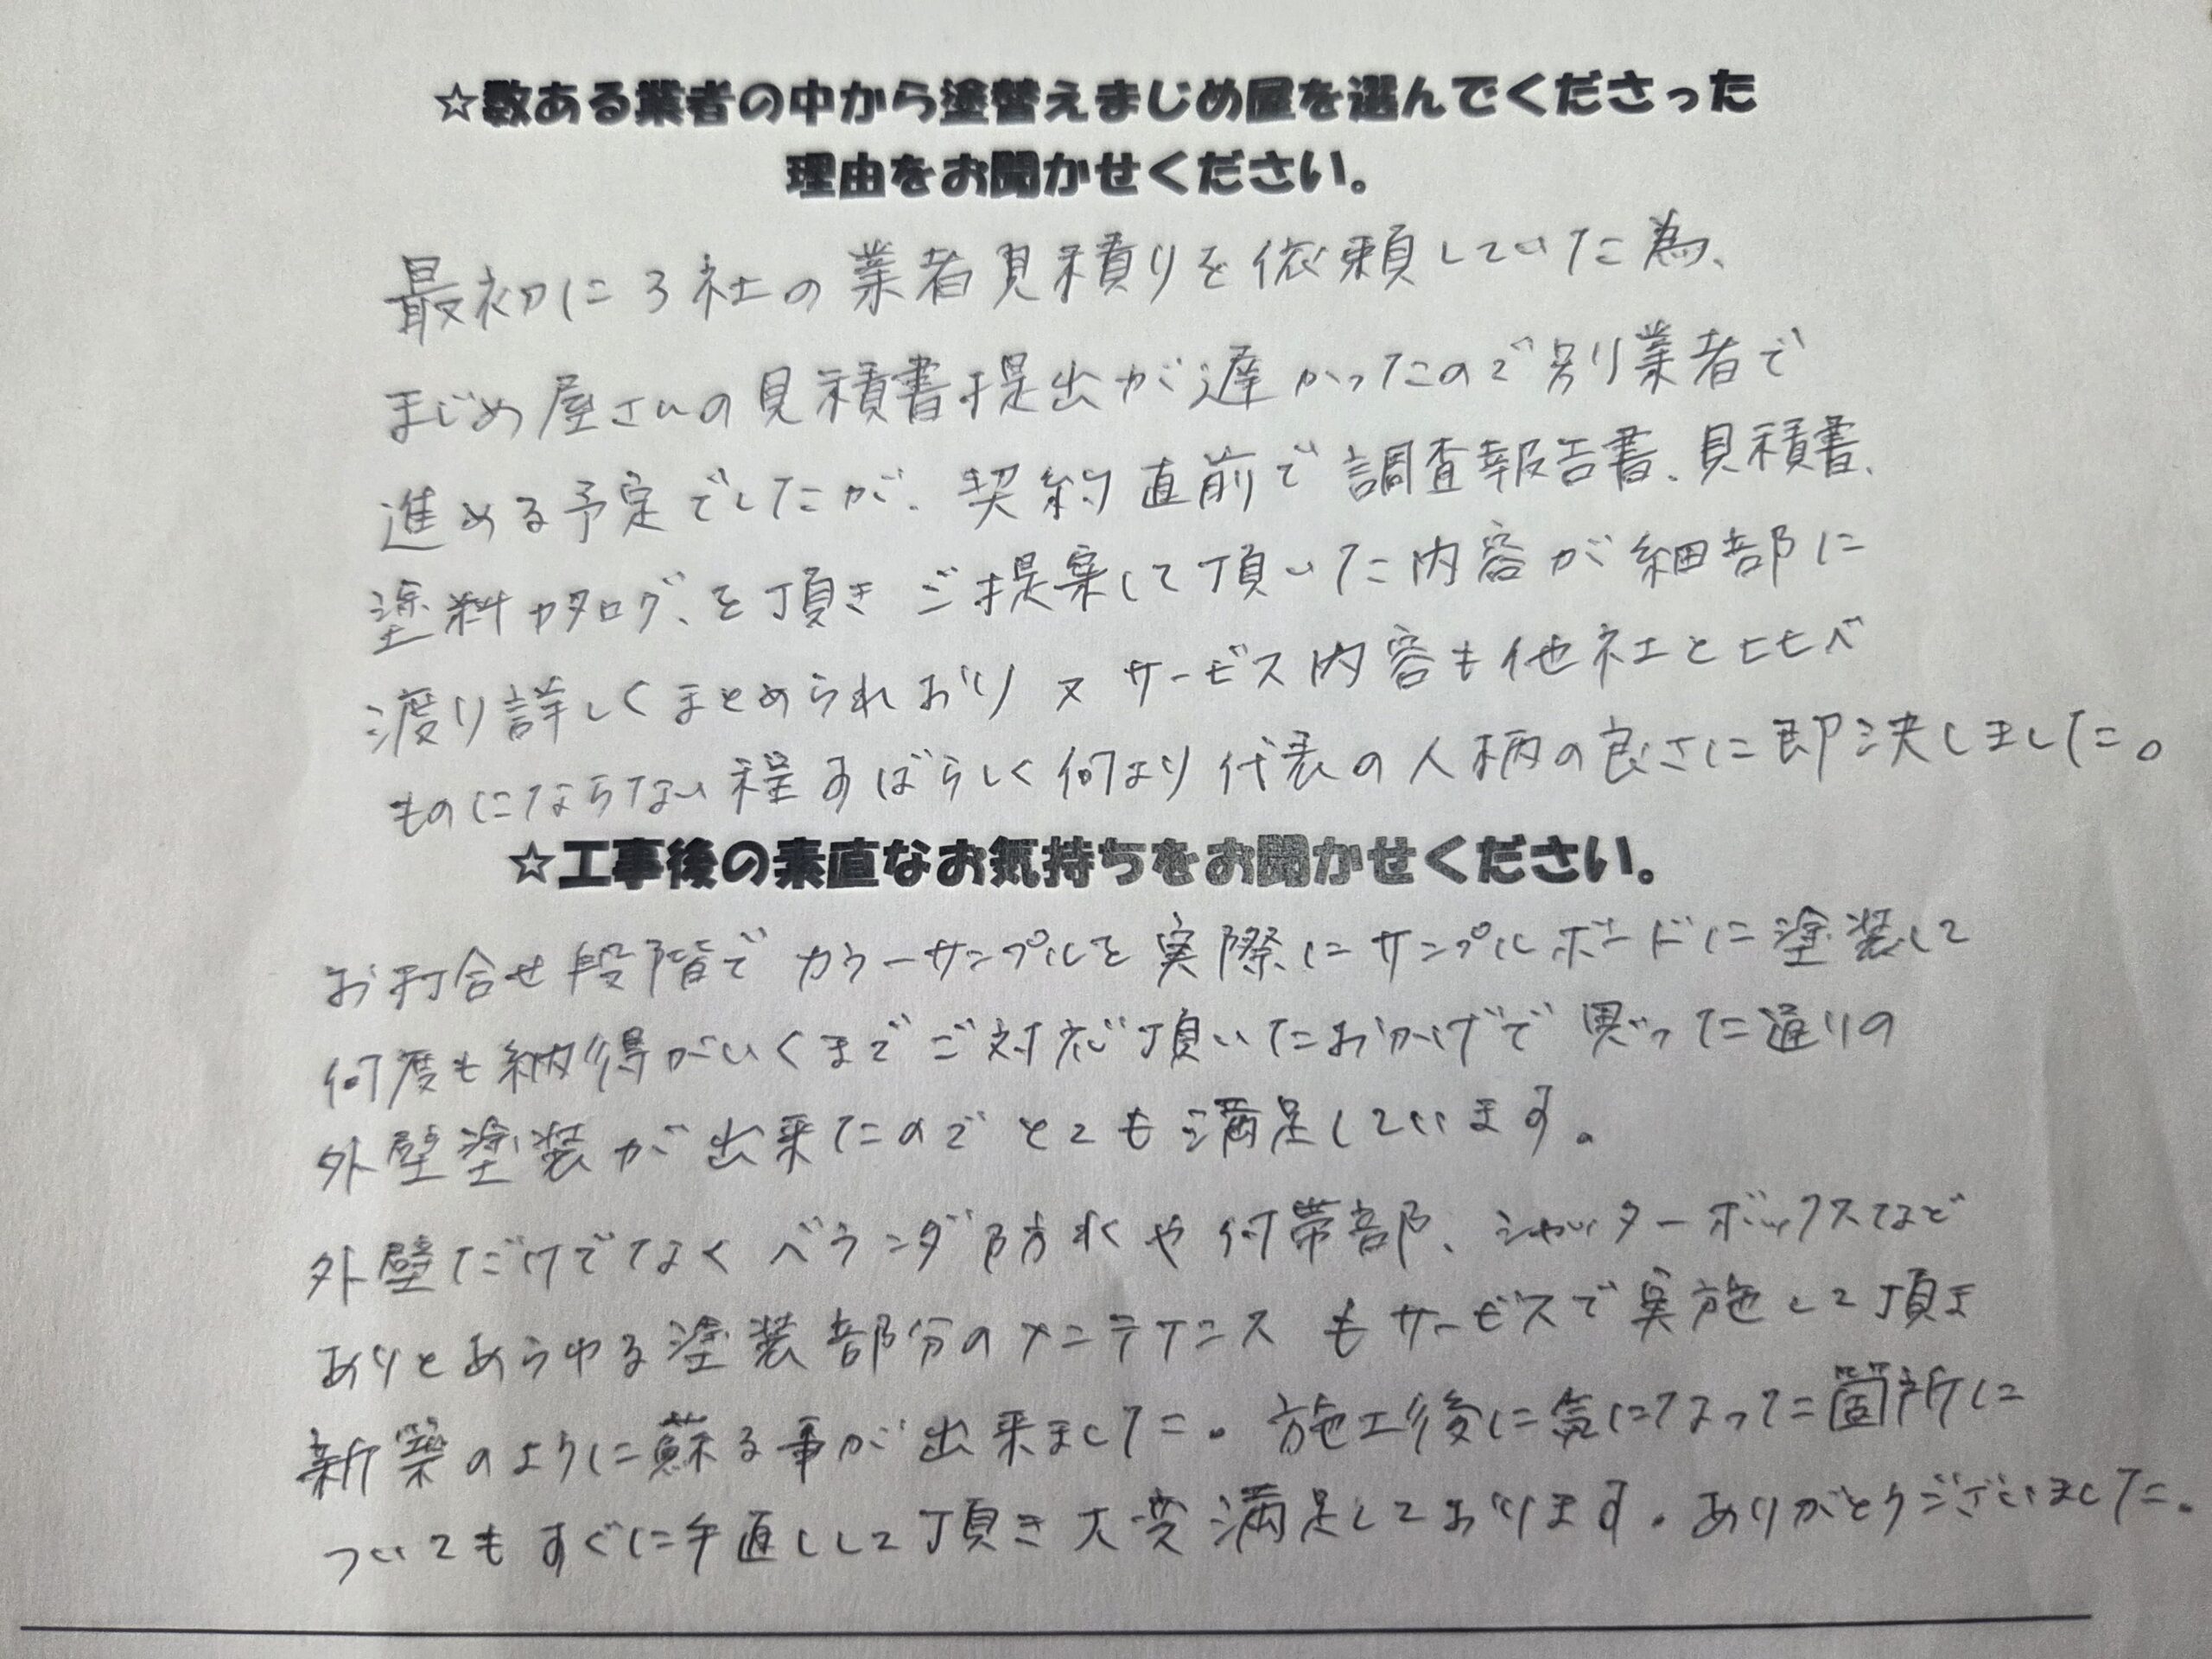 ☆数ある業者の中から塗替えまじめ屋を選んでくださった
理由をお聞かせください。
最初に3社の業者見積りを依頼していた為、
まじめ屋さんの見積書提出が遅かったので別業者で
進める予定でしたが、契約直前で調査報告書、見積書、
塗料カタログ、を頂きご提案して頂いた内容が細部に
渡り詳しくまとめられおり又サービス内容も他社と比べ
ものにならない程すばらしく何より代表の人柄の良さに即決しました。
☆工事後の素直なお気持ちをお聞かせください。
お打合せ段階でカラーサンプルを実際にサンプルボードに塗装して
何度も納得がいくまでご対応頂いたおかげで思った通りの
外壁塗装が出来たのでとても満足しています。
外壁だけでなくベランダ防水や付帯部、シャッターボックスなど
ありとあらゆる塗装部分のメンテナンスもサービスで実施して頂き
新築のように蘇る事が出来ました。施工後に気になった箇所に
ついてもすぐに手直しして頂き大変満足しております。ありがとうございました。